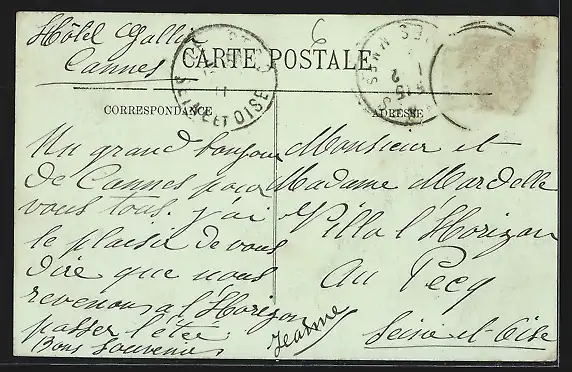 Hôtel Gallia
Cannes
CARTE POSTALE
6
SEINE ET OISE
CORRESPONDANCE
ADRESSE
Un grand bonjour
de Cannes pour
vous tous. j'ai
le plaisir de vous
dire que nous
revenons a l'Horizon
passer l'été.
Bons Souvenirs
Jeanne
Monsieur et
Madame Mardelle
Villa l'Horizon
au Pecq
Seine et Oise